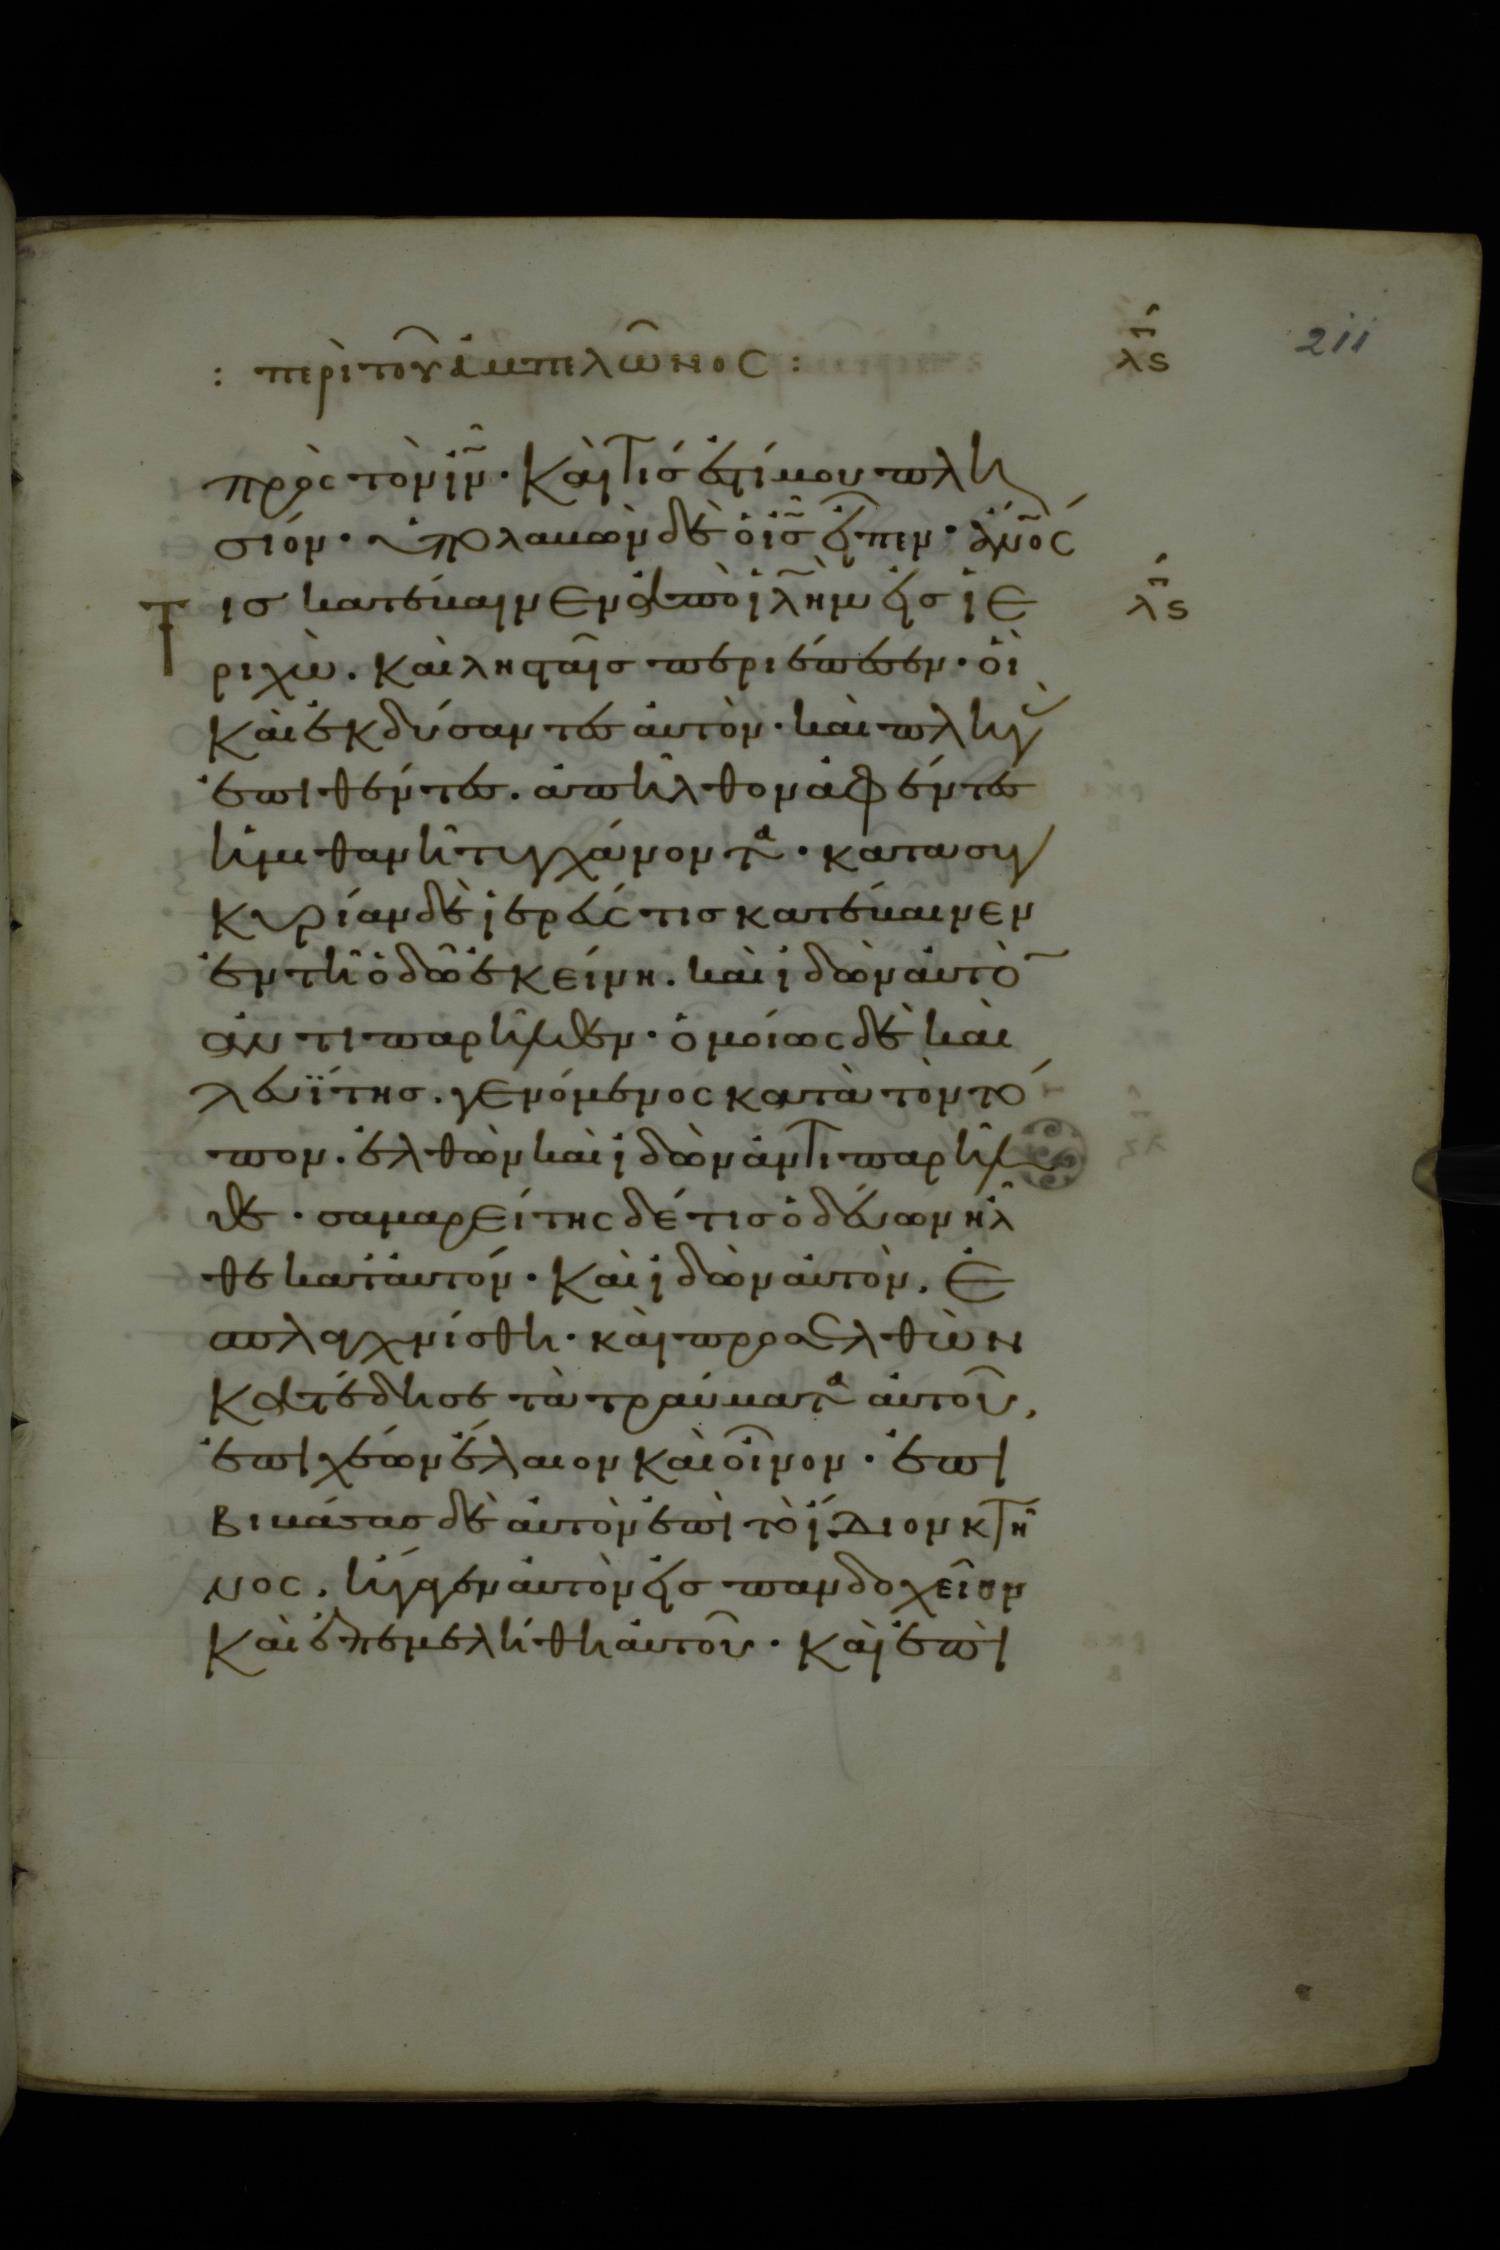 : περὶ τοῦ ἀμπελῶνος : λϛ 211
πρὸς τὸν ιν̅ · Καὶ τίς ἐστί μου πλη
σίον · ὑπολαβὼν δὲ ὁ ισ̅ εἶπεν · ἀνο̅ς
τισ κατέβαινεν ἀπὸ ιλ̅ημ εἰσ ἱε λϛ
ριχὼ . Καὶ λησταῖσ περιέπεσεν · οἳ
Καὶ ἐκδύσαντεσ ἀυτὸν · καὶ πληγὰσ
ἐπιθέντεσ . ἀπῆλθον ἀφέντεσ
ἡμιθανῆ τυγχάνοντα · κατα συγ
κυρίαν δὲ ἱερεύς τισ κατέβαινεν
ἐν τῆ ὁδῶ ἐκείνη . καὶ ἰδὼν ἀυτὸ̅
ἀντιπαρῆλθεν · ὁμοίως δὲ καὶ
λευΐτησ . γενόμενος κατὰ τὸν τό
πον . ἐλθὼν καὶ ἰδὼν ἀντιπαρῆλ
θε · σαμαρείτης δέ τισ ὁδεύων ἦλ
θε κατ' ἀυτόν · Καὶ ἰδὼν ἀυτὸν , ἐ
σπλαγχνίσθη · καὶ προσελθὼν
Κατέδησε τὰ τραύματα ἀυτοῦ ,
ἐπιχέων ἔλαιον Καὶ οἶνον · ἐπι
βιβάσασ δὲ ἀυτὸν ἐπὶ τὸ ἴδιον κτῆ
νος , ἤγαγεν ἀυτὸν εἰσ πανδοχεῖον
Καὶ ἐπεμελήθη ἀυτοῦ · Καὶ ἐπὶ